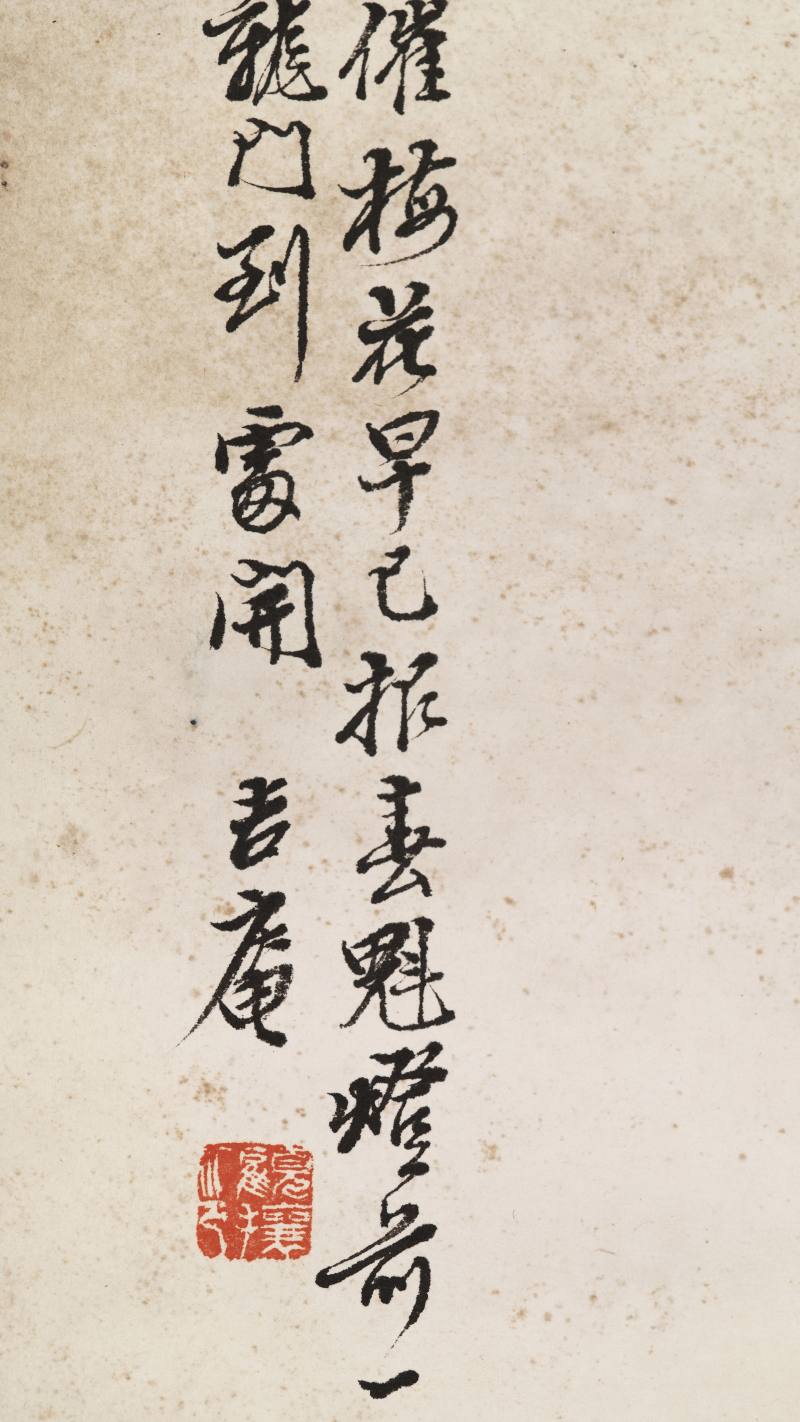 催梅花早已报春魁燈前一
龍門到處開
吉庵